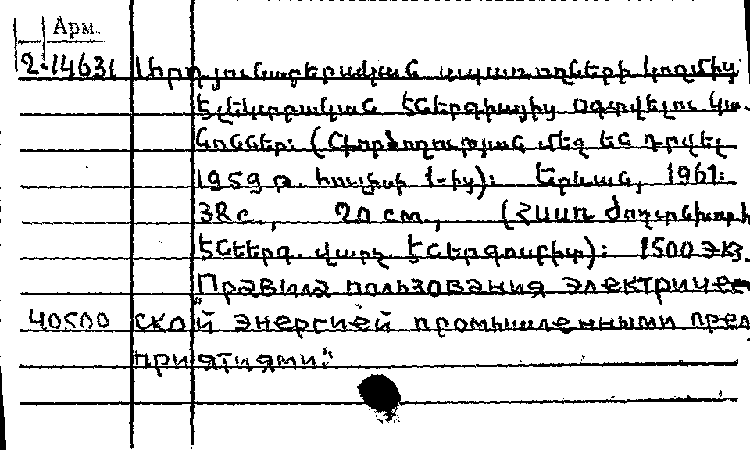 Арм.
2-14631 Արդյունաբերական սպառողների կողմից
էլեկտրական էներգիայից օգտվելու կա-
նոններ: (Գործողության մեջ են դրվել
1959 թ. հուլիսի 1-ից): Երևան, 1961:
32 с., 20 см., (ՀՍՍՌ
էներգ. վարչ. Էներգո): 1500 экз.
"Правила пользования электричес
40500 ской энергией промышленными пред
приятиями."